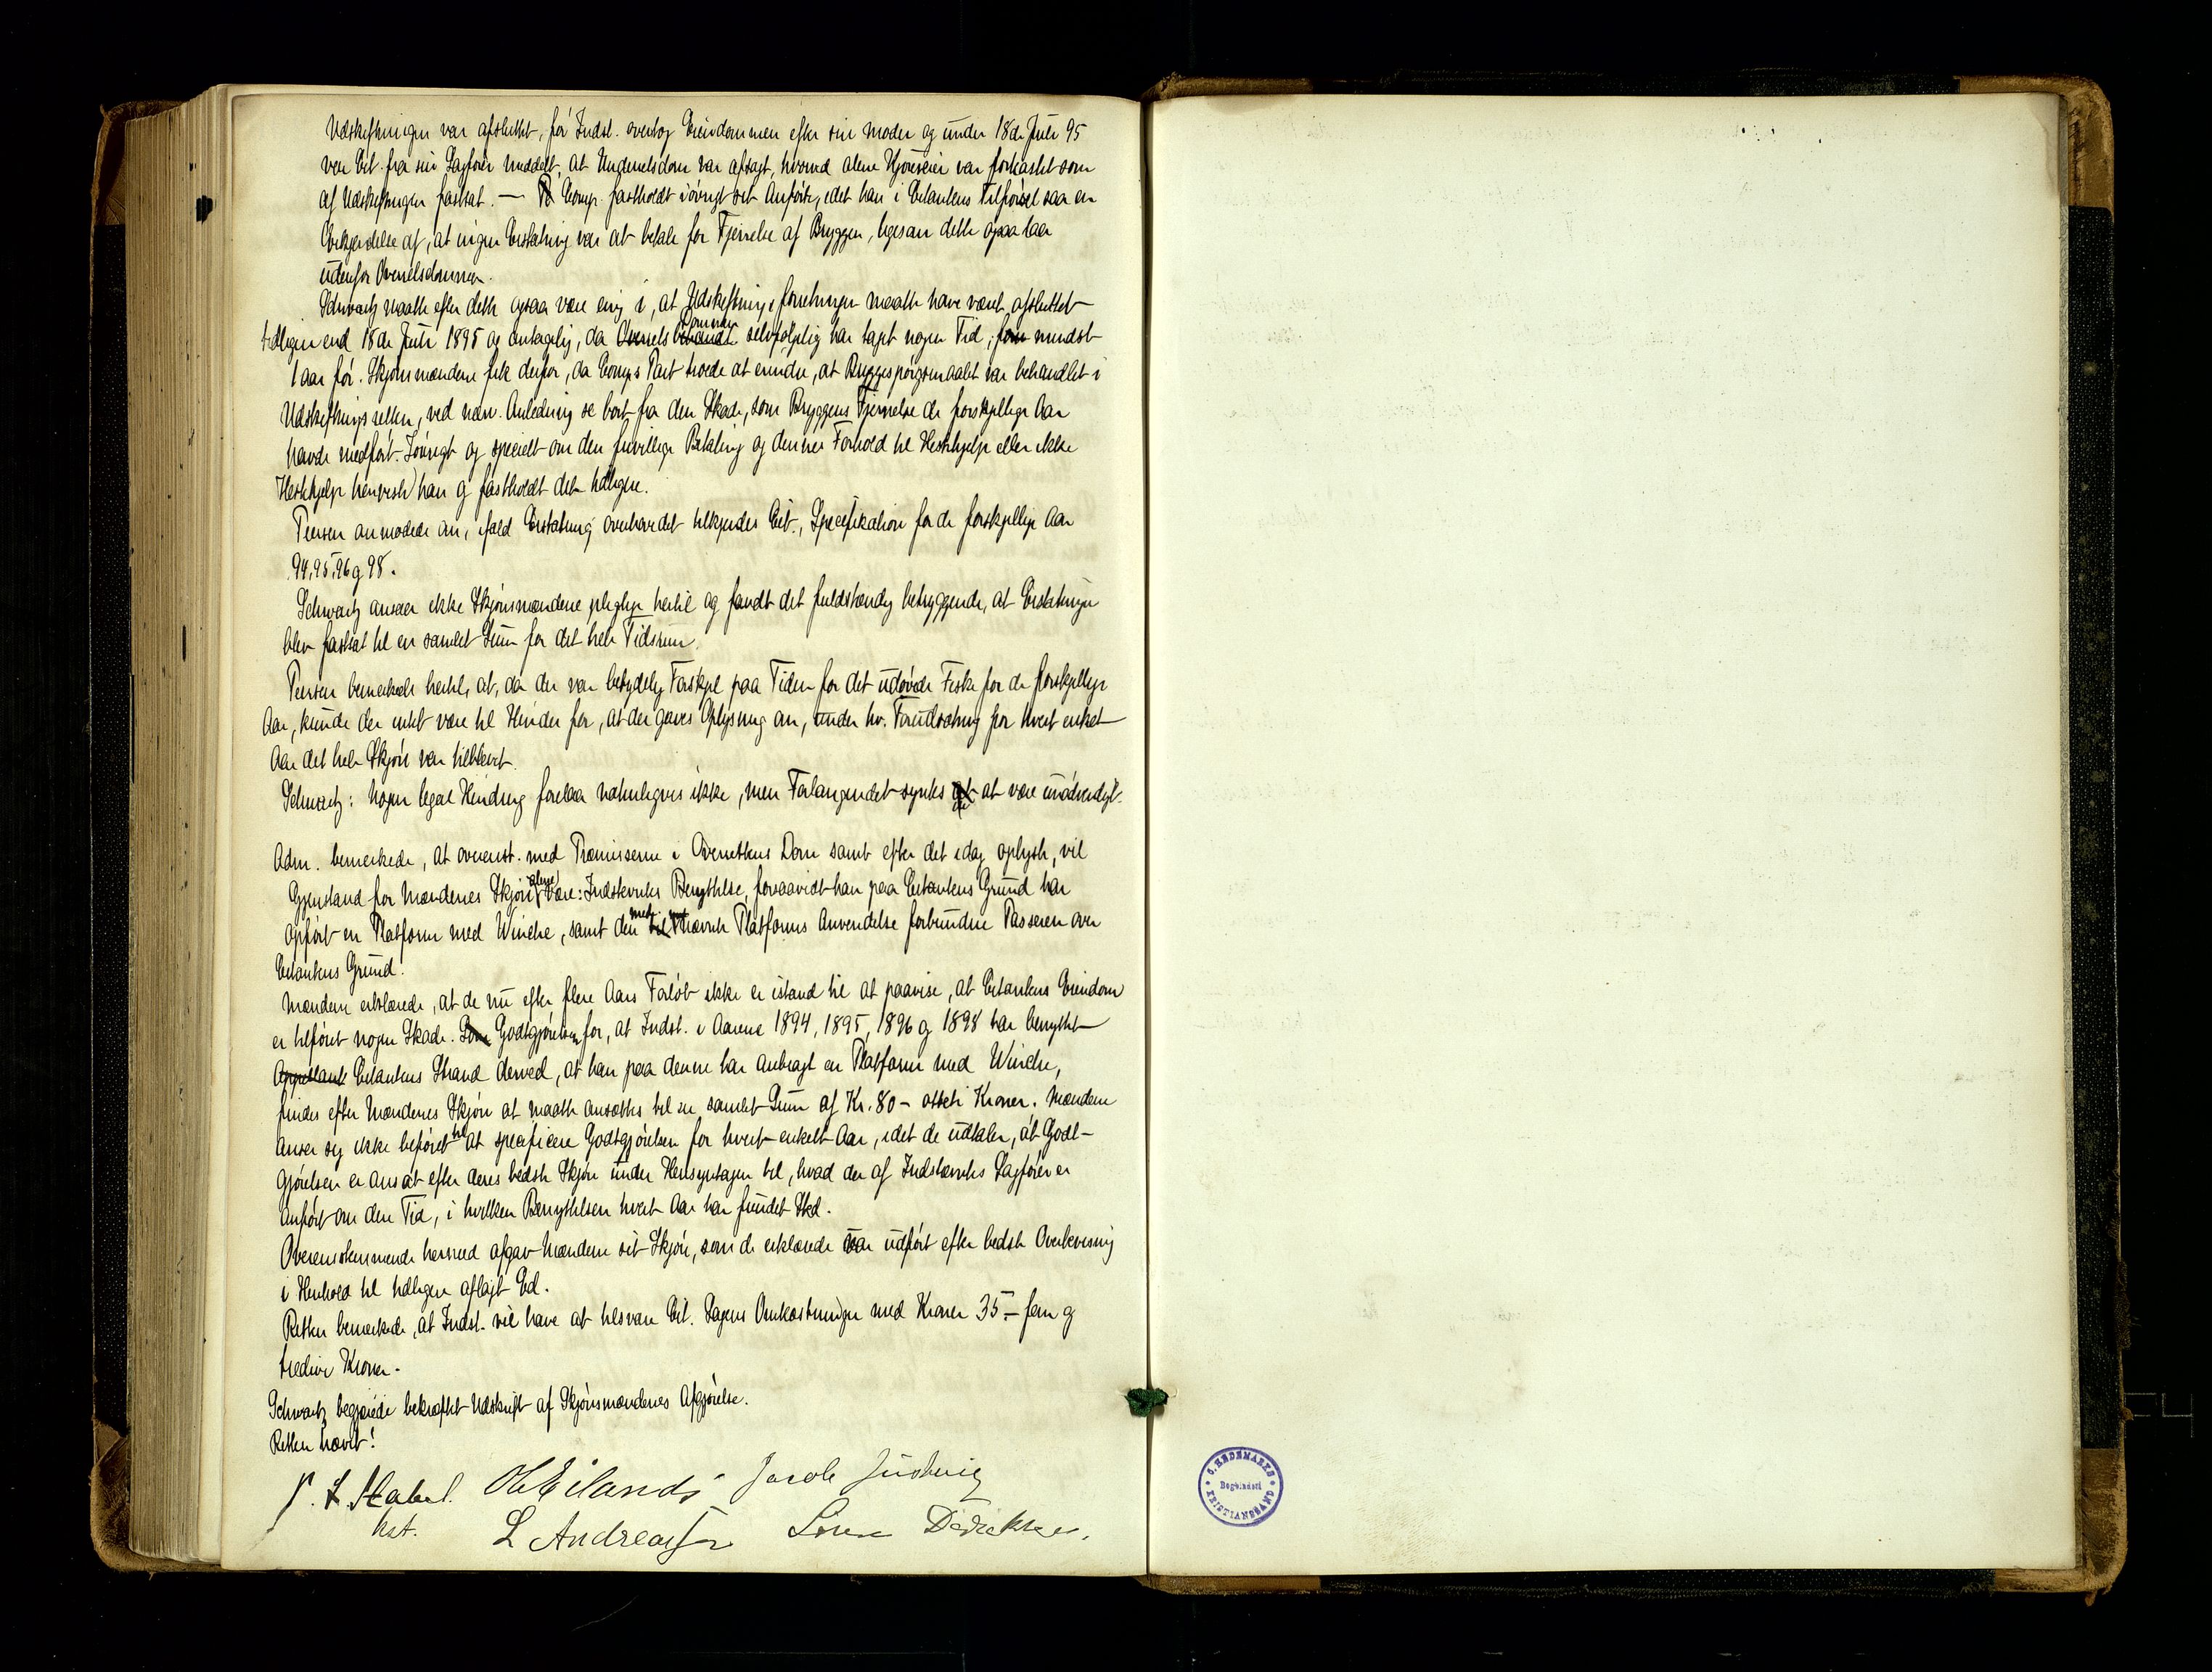 Udskiftningen var afsluttet, før Indst. overtog Eiendommen efter sin Moder og under 18de Juli 95
var Cit. fra sin Sagfører meddelt, at Underretsdom var afsagt, hvorved alene Kjøreveien var forkastet som
af Udskiftningen fastsat. — Comp. fastholdt iøvrigt sit Anførte, idet han i Citantens Tilførsel saa en
Erkjendelse af, at ingen Erstatning var at betale for Fjernelse af Bryggen, ligesom dette ogsaa laa
udenfor Overretsdommen.
Schwartz maatte efter dette ogsaa være enig i, at Udskiftningsforretningen maatte have været afsluttet
tidligere end 18de Juli 1895 og antagelig, da Overrets Dommen selvfølgelig har taget nogen Tid, mindst
1 aar før. Skjønsmændene fik derfor, da Comps Part troede at erindre, at Bryggespørgsmaalet var behandlet i
Udskiftningsretten, ved nærv. Anledning se bort fra den Skade, som Bryggens Fjernelse de forskjellige Aar
havde medført. Iøvrigt og specielt om den frivillige Betaling og dennes Forhold til Hestehjelp eller ikke
Hestehjelp henviste han og fastholdt det tidligere.
Peersen anmodede om, ifald Erstatning overhovedet tilkjendes Cit., Specifikation for de forskjellige Aar
94, 95, 96 og 98.
Schwartz anseer ikke Skjønsmændene pligtige hertil og fandt det fuldstændig betryggende, at Erstatningen
blev fastsat til en samlet Sum for det hele Tidsrum.
Peersen bemærkede hertil, at, da der var betydelig Forskjel paa Tiden for det udøvede Fiske for de forskjellige
Aar, kunde der intet være til Hinder for, at der gaves Oplysning om, under hv. Forudsætning for hvert enkelt
Aar det hele Skjøn var tilblevet.
Schwartz: Nogen legal Hindring forelaa naturligvis ikke, men Forlangendet syntes at være unødvendigt.
Adm. bemerkede, at overenst. med Præmisserne i Overrettens Dom samt efter det idag oplyste, vil
Gjenstand for Mændenes Skjøn alene være: Indstevntes Benyttelse, forsaavidt han paa Citantens Grund har
opført en Platform med Winche, samt den med nævnte Platforms Anvendelse forbundne Passeren over
Citantens Grund.
Mændene erklærede, at de nu efter flere Aars Forløb ikke er istand til at paavise, at Citantens Eiendom
er tilføiet nogen Skade. Godtgjørelsen for, at Indst. i Aarene 1894, 1895, 1896 og 1898 har benyttet
Citantens Strand derved, at han paa denne har anbragt en Platform med Winche,
findes efter Mændenes Skjøn at maatte ansættes til en samlet Sum af Kr. 80 – otteti Kroner. Mændene
anser sig ikke beføiet til at specificere Godtgjørelsen for hvert enkelt Aar, idet de udtaler, at Godt-
gjørelsen er ansat efter deres bedste Skjøn under Hensyntagen til, hvad der af Indstævntes Sagfører er
anført om den Tid, i hvilken Benyttelsen hvert Aar har fundet Sted.
Overensstemmende hermed afgav Mændene sit Skjøn, som de erklærede var udført efter bedste Overbevisning
i Henhold til tidligere aflagt Ed.
Retten bemerkede, at Indst. vil have at tilsvare Cit. Sagens Omkostninger med Kroner 35.– fem og
tredive Kroner.
Schwartz begjærede bekræftet Udskrift af Skjønsmændenes Afgjørelse.
Retten hævet!
Stabel. O Eilands Jacob Ludvig
kst. L Andreassen Søren Didriksen.
C. HEDEMARKS
Bogbinderi
KRISTIANSSAND